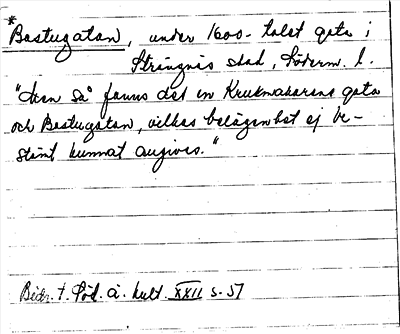 *
Bastugatan, under 1600-talet gata i
Strängnäs stad, Söderm. l.
"Även så fanns det en Krukmakarens gata
och Bastugatan, vilkas belägenhet ej be-
stämt kunnat angivas."
Bidr. t. Söd. ä. kult. XXII s. 57